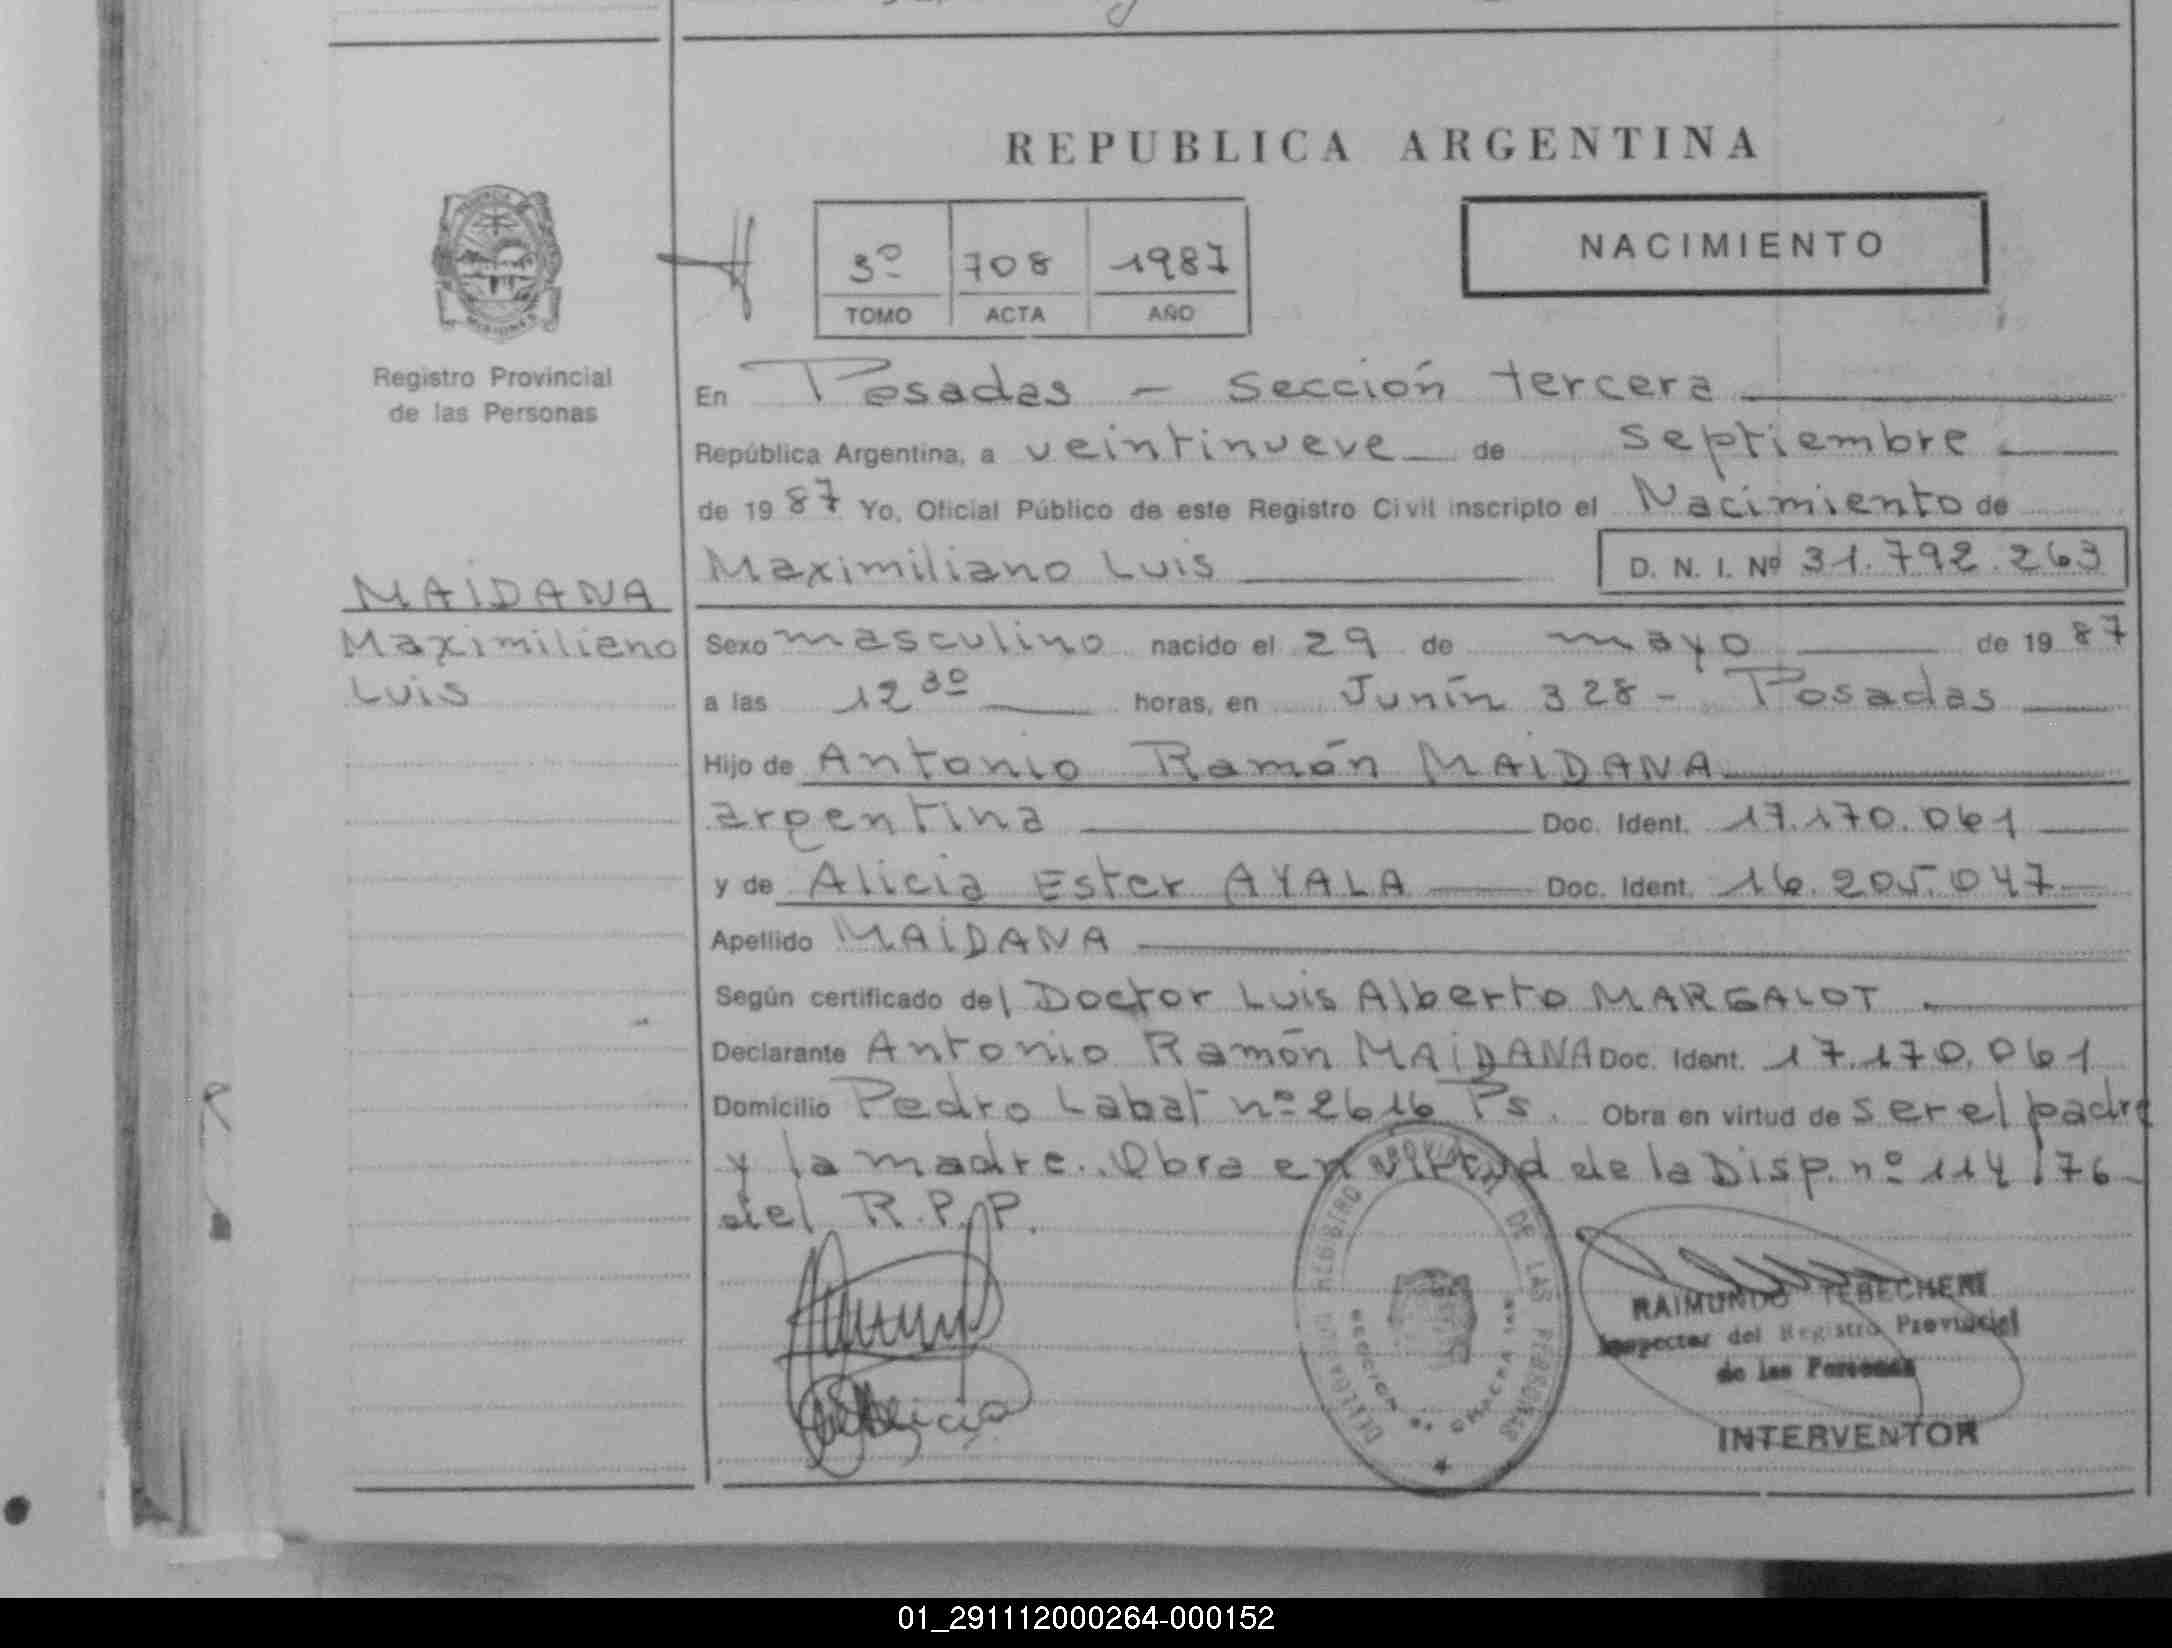 REPUBLICA ARGENTINA
3º 708 1987
TOMO ACTA AÑO
NACIMIENTO
Registro Provincial
de las Personas
En Posadas - Sección tercera
República Argentina, a veintinueve de septiembre
de 1987 Yo, Oficial Público de este Registro Civil inscripto el Nacimiento de
Maximiliano Luis D. N. I. Nº 31.792.263
MAIDANA
Maximiliano
Luis
Sexo masculino nacido el 29 de mayo de 1987
a las 12 30 horas, en Junín 328 - Posadas
Hijo de Antonio Ramón MAIDANA
argentina Doc. Ident. 17.170.061
y de Alicia Ester AYALA Doc. Ident. 16.205.047
Apellido MAIDANA
Según certificado del Doctor Luis Alberto MARGALOT
Declarante Antonio Ramón MAIDANA Doc. Ident. 17.170.061
Domicilio Pedro Labat nº 2616 Ps. Obra en virtud de ser el padre
y la madre. Obra en virtud de la Disp. nº 114/76
del R.P.P.
REGISTRO DE LAS PERSONAS
RAIMUNDO TEBECHERI
Inspector del Registro Provincial
de las Personas
INTERVENTOR
Alicia
01_291112000264-000152